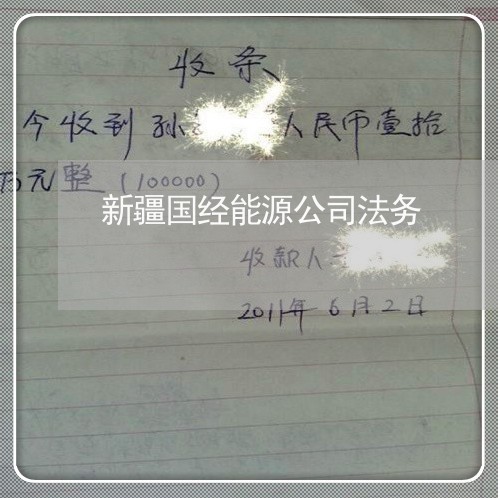 收条
今收到孙 人民币壹拾
万元整（100000）
新疆国经能源公司法务
收款人
2011年6月2日